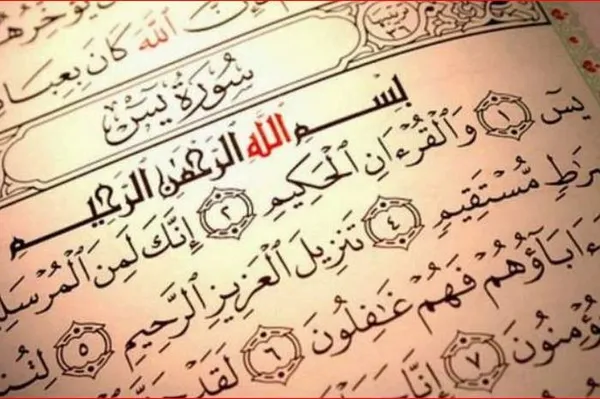 اللَّهَ كَانَ
سُورَةُ يسٓ
بِسْمِ اللَّهِ الرَّحْمَٰنِ الرَّحِيمِ
يسٓ ١ وَالْقُرْءَانِ الْحَكِيمِ ٢ إِنَّكَ لَمِنَ الْمُرْسَلِ
رَٰطٍ مُّسْتَقِيمٍ ٤ تَنزِيلَ الْعَزِيزِ الرَّحِيمِ ٥ لِتُن
ءَابَآؤُهُمْ فَهُمْ غَٰفِلُونَ ٦ لَقَدْ
ؤْمِنُونَ ٧ إِنَّا